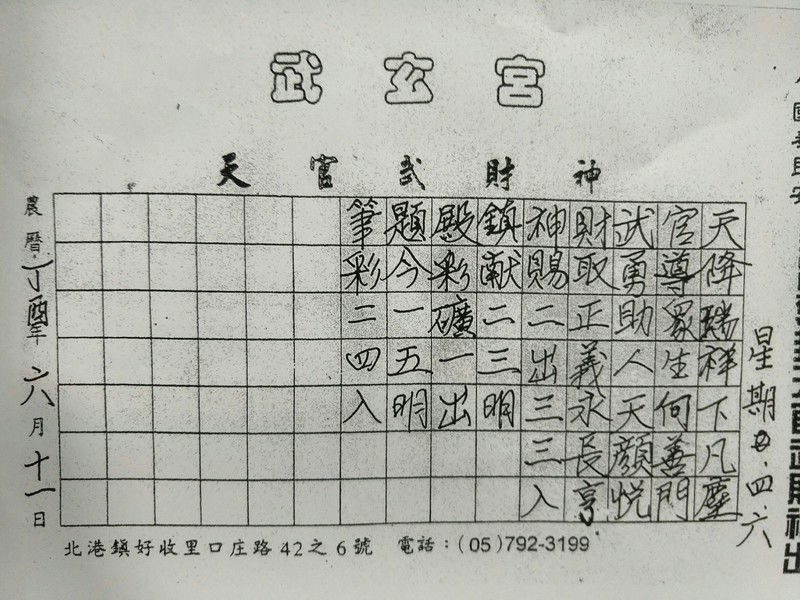 武玄宮
天官武財神
星期二.四.六
天降瑞祥下凡塵
官導眾生何善門
武勇助人天顏悦
財取正義永長亨
神賜二出三三入
鎮献二三明
殿彩礦一出
題今一五明
筆彩二四入
農曆丁酉年六月十一日
北港鎮好收里口庄路42之6號 電話：(05)792-3199